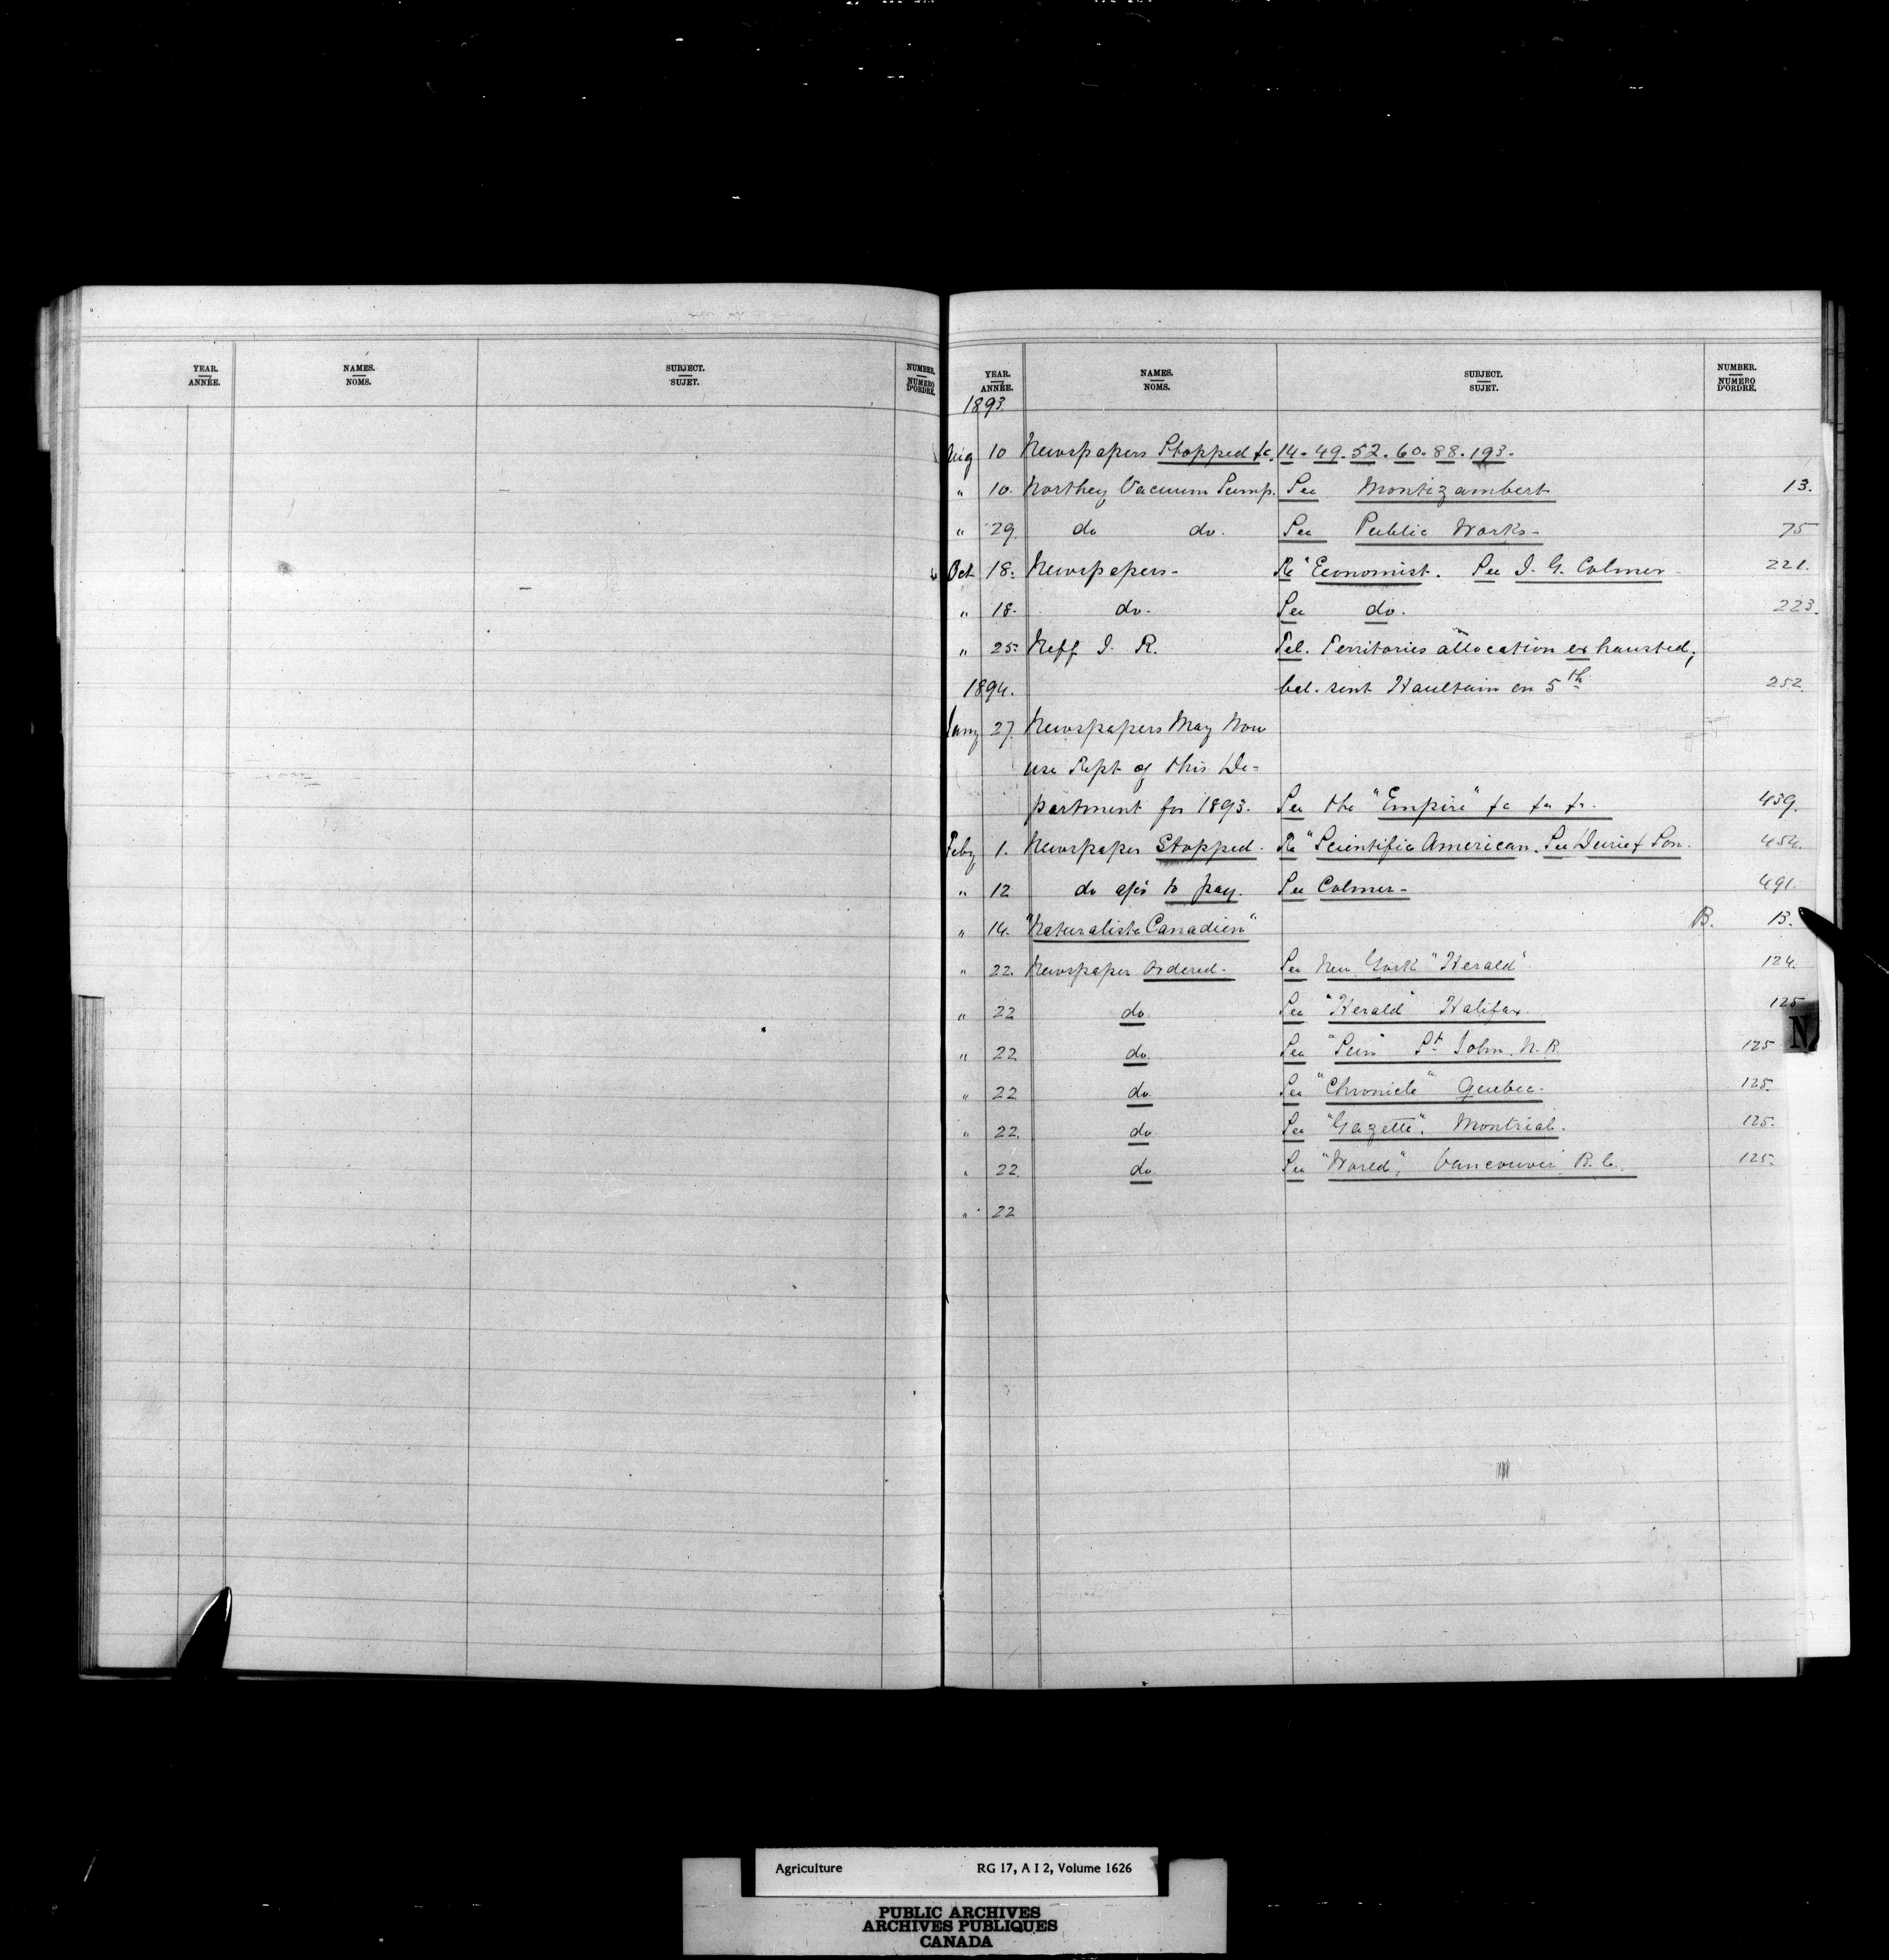 YEAR. NAMES. SUBJECT. NUMBER.
ANNÉE. NOMS. SUJET. NUMERO D'ORDRE.
YEAR. NAMES. SUBJECT. NUMBER.
ANNÉE. NOMS. SUJET. NUMERO D'ORDRE.
1893.
Aug 10 Newspapers Stopped &c. 14. 49. 52. 60. 88. 193.
" 10. Northey Vacuum Pump. See Montizambert 13.
" 29. do do. See Public Works - 75
Oct 18. Newspapers - Re "Economist. See J. G. Colmer - 221.
" 18. do. See do. 223.
" 25. Neff J. R. Tel. Territories allocation exhausted,
1894. bal. sent Haultain on 5th 252.
Jany 27. Newspapers May Now
use Rept of this De-
partment for 1893. See the "Empire" &c &c &c. 439.
Feby 1. Newspaper Stopped. Re "Scientific American. See & Son. 454.
" 12 do to pay. See Colmer - 491.
" 14. "Naturaliste Canadien" B. 13.
" 22. Newspaper Ordered. See New York "Herald" 124.
" 22 do. See "Herald" Halifax 125
" 22 do. See "Sun" St John N.B 125
" 22 do. See "Chronicle" Quebec - 125.
" 22. do See "Gazette". Montreal. 125.
" 22. do See "World", Vancouver B.C. 125.
" 22
N
Agriculture RG 17, A I 2, Volume 1626
PUBLIC ARCHIVES
ARCHIVES PUBLIQUES
CANADA